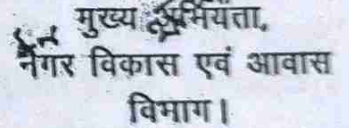 मुख्य अभियंता,
नगर विकास एवं आवास
विभाग।